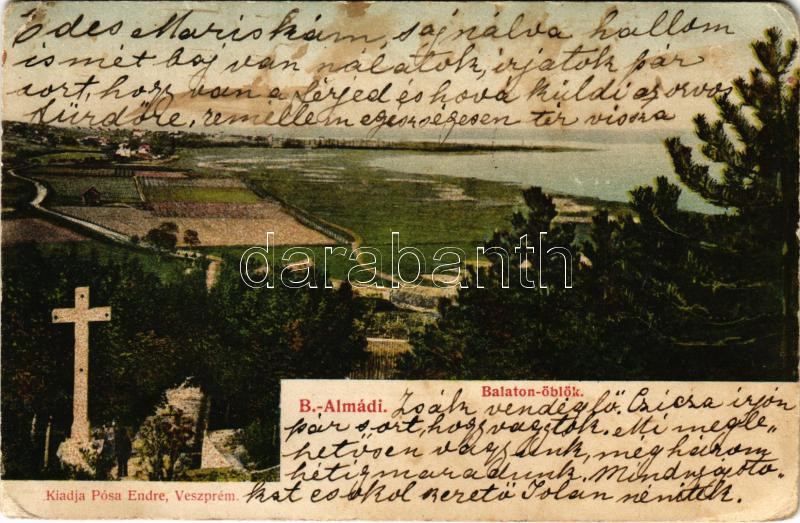 Édes Mariskám sajnálva hallom
ismét baj van nálatok, irjatok pár
sort, hogy van a férjed és hova küldi az orvos
fürdőre, remélem egészségesen tér vissza
darabanth
Balaton-öblök.
B.-Almádi. Zsák vendéglő. Czicza irjon
pár sort, hogy vagytok. Mi megle-
hetősen vagyunk, még három
hétig maradunk. Mindnyájato-
Kiadja Pósa Endre, Veszprém. kat csókol szerető Jolán nénitek.